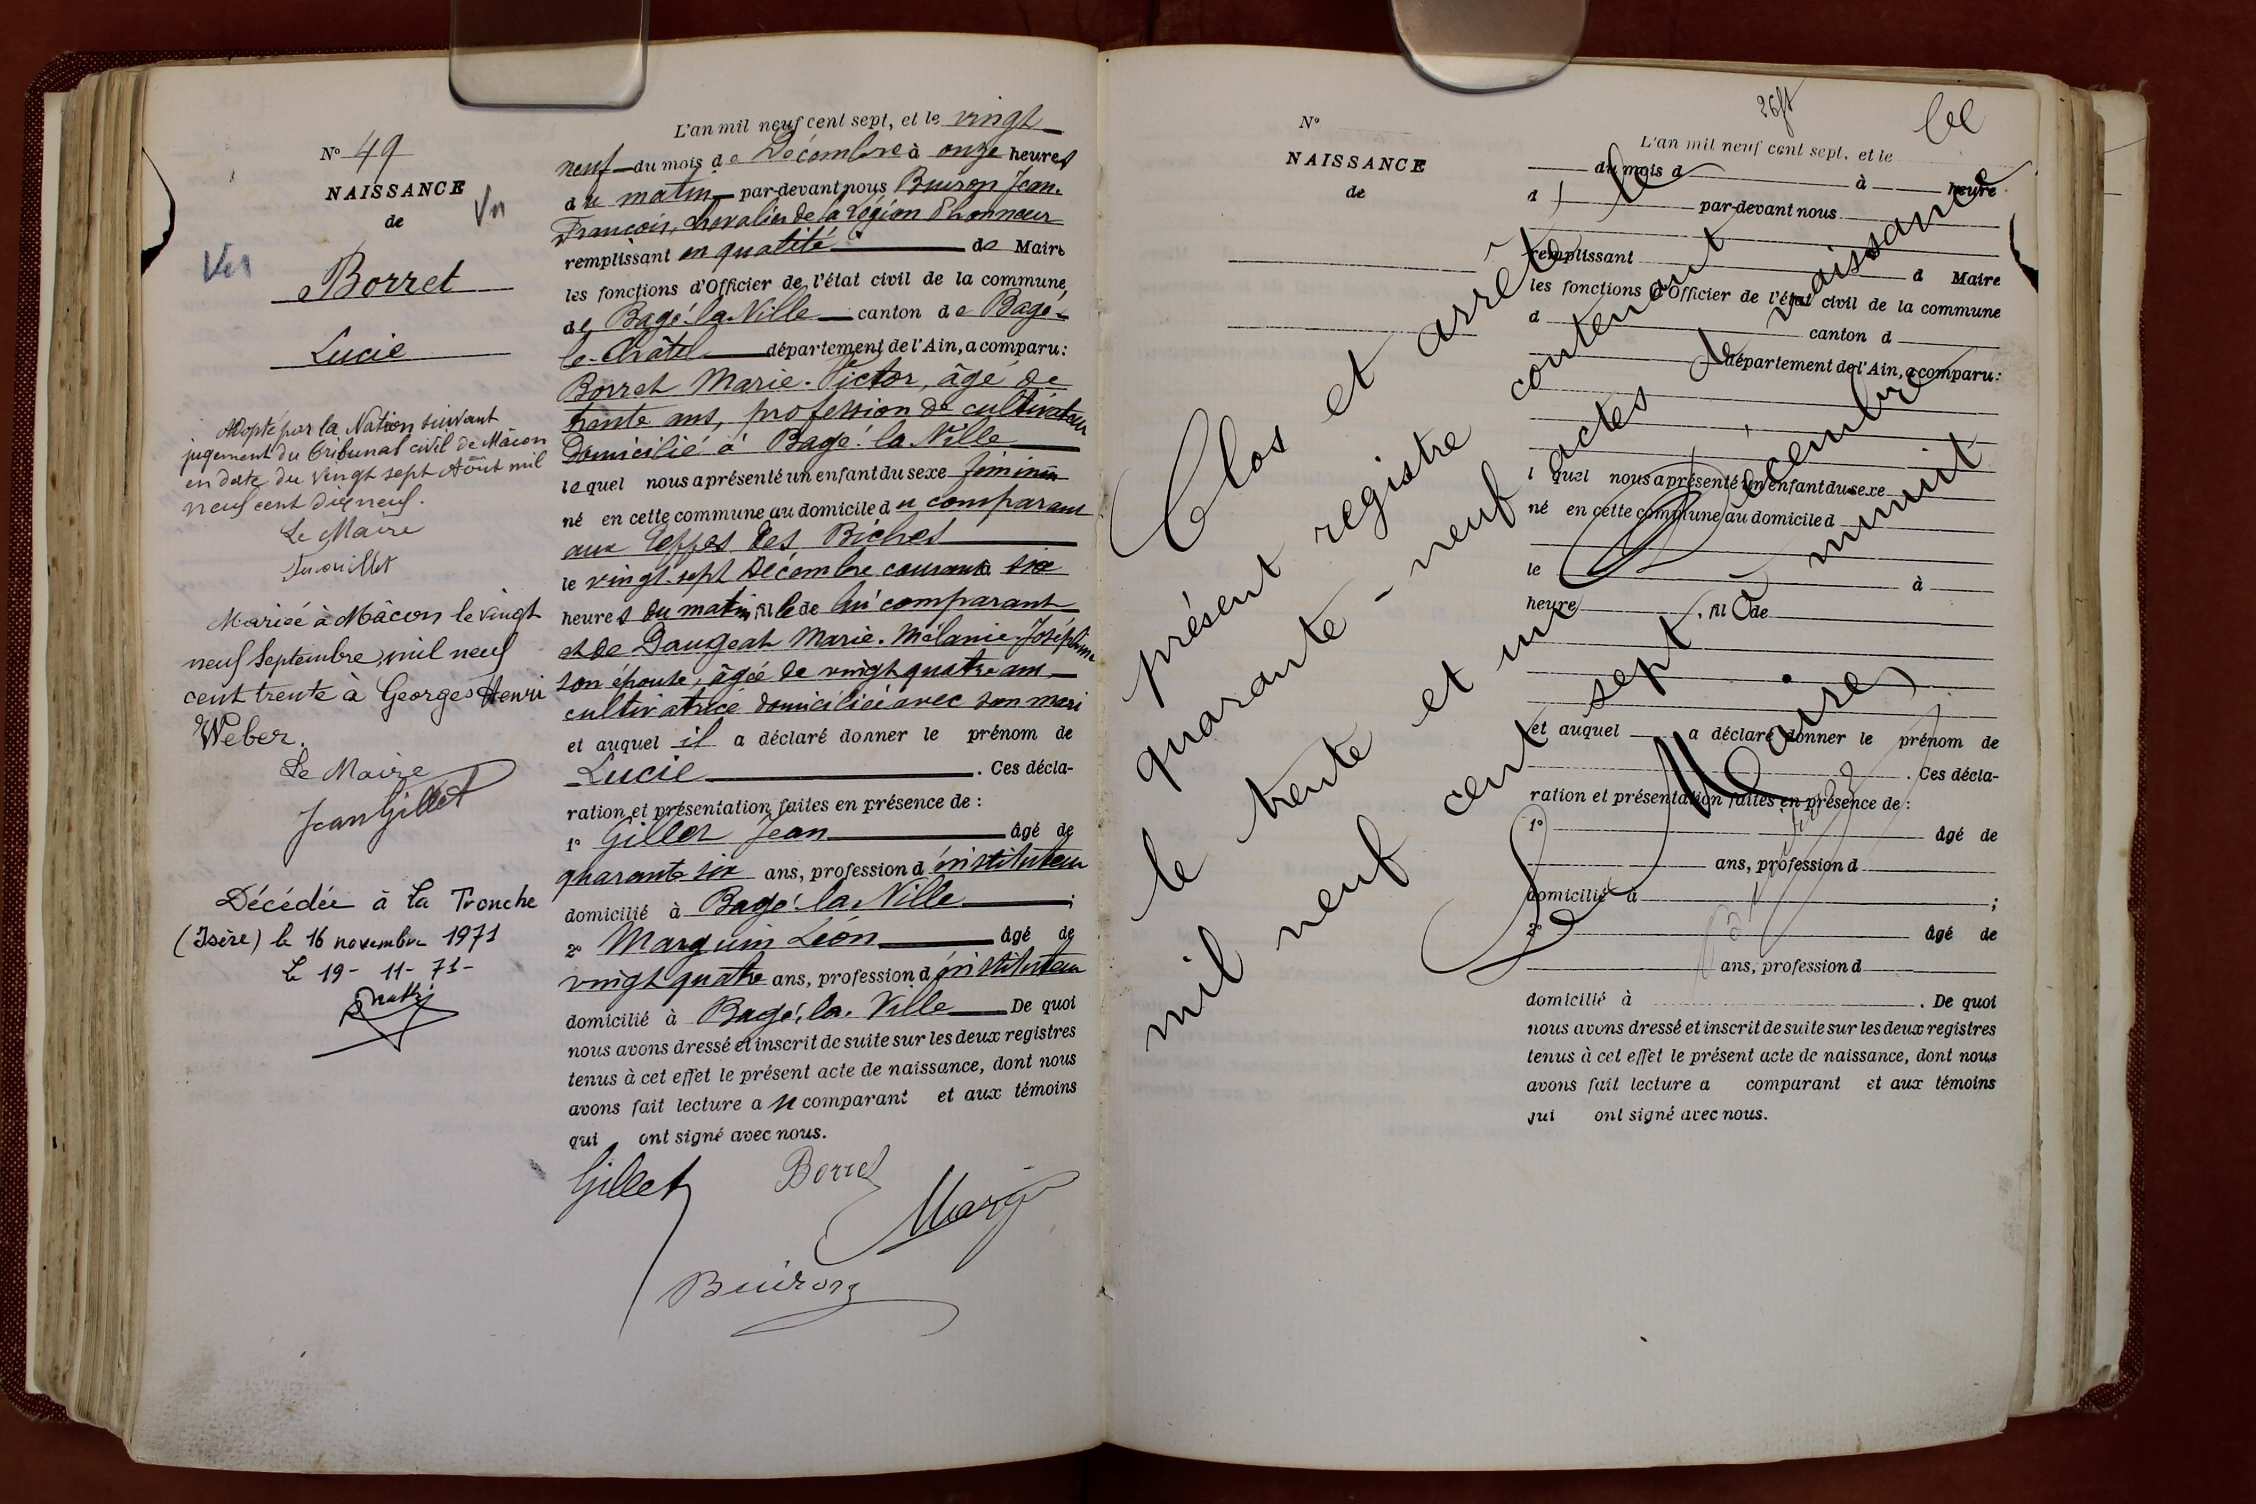 N° 49
NAISSANCE
de
Vu
Vu
Borret
Lucie
Adopté par la Nation suivant
jugement du tribunal civil de Mâcon
en date du vingt sept Août mil
neuf cent dix neuf.
Le Maire
Mariée à Mâcon le vingt
neuf Septembre mil neuf
cent trente à Georges Henri
Weber.
Le Maire
Jean Gillet
Décédée à La Tronche
(Isère) le 16 novembre 1971
Le 19 - 11 - 71 -
L'an mil neuf cent sept, et le vingt
neuf du mois de Décembre à onze heures
du matin par-devant nous Buiron Jean-
François, chevalier de la légion d'honneur
remplissant en qualité de Maire
les fonctions d'Officier de l'état civil de la commune
de Bagé-la-Ville canton de Bagé-
le-Châtel département de l'Ain, a comparu :
Borret Marie-Victor, âgé de
trente ans, profession de cultivateur
domicilié à Bagé-la-Ville
lequel nous a présenté un enfant du sexe féminin
né en cette commune au domicile du comparant
aux Teppes des Biches
le vingt-sept Décembre courant à six
heures du matin, fille de lui comparant
et de Daugeat Marie-Mélanie-Joséphine
son épouse, âgée de vingt quatre ans
cultivatrice domiciliée avec son mari
et auquel il a déclaré donner le prénom de
Lucie . Ces décla-
ration et présentation faites en présence de :
1° Gillet Jean âgé de
quarante-six ans, profession d'instituteur
domicilié à Bagé-la-Ville ;
2° Marguin Léon âgé de
vingt quatre ans, profession d'instituteur
domicilié à Bagé-la-Ville De quoi
nous avons dressé et inscrit de suite sur les deux registres
tenus à cet effet le présent acte de naissance, dont nous
avons fait lecture au comparant et aux témoins
qui ont signé avec nous.
Gillet Borret
Buiron
N°
NAISSANCE
de
L'an mil neuf cent sept, et le
du mois d à heure
d par-devant nous
remplissant d Maire
les fonctions d'Officier de l'état civil de la commune
d canton d
département de l'Ain, a comparu :
l quel nous a présenté un enfant du sexe
né en cette commune au domicile d
le à
heure , fil de
et auquel a déclaré donner le prénom de
. Ces décla-
ration et présentation faites en présence de :
1° âgé de
ans, profession d
domicilié à ;
2° âgé de
ans, profession d
domicilié à . De quoi
nous avons dressé et inscrit de suite sur les deux registres
tenus à cet effet le présent acte de naissance, dont nous
avons fait lecture a comparant et aux témoins
qui ont signé avec nous.
Clos et arrêté le
présent registre contenant
quarante-neuf actes de naissance
le trente et un Décembre
mil neuf cent sept à minuit
Le Maire,